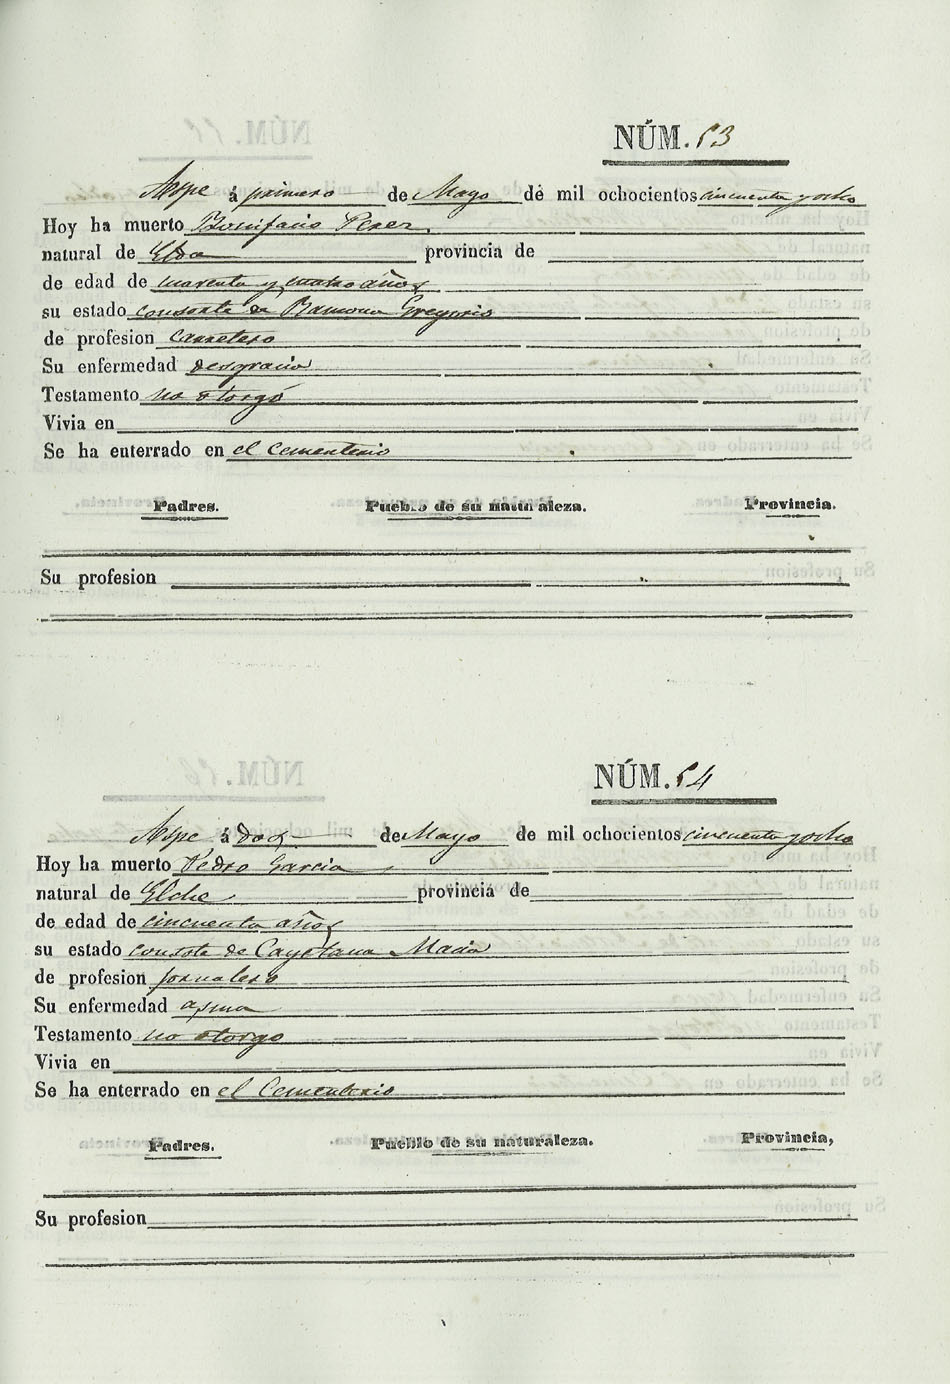 NÚM. 53
Aspe á primero de Mayo de mil ochocientos cincuenta y ocho
Hoy ha muerto Bonifacio Perez
natural de Elda provincia de
de edad de cuarenta y cuatro años
su estado consorte de Ramona Gregorio
de profesion carretero
Su enfermedad desgracia
Testamento no otorgó
Vivia en
Se ha enterrado en el Cementerio
Padres. Pueblo de su naturaleza. Provincia.
Su profesion
NÚM. 54
Aspe á dos de Mayo de mil ochocientos cincuenta y ocho
Hoy ha muerto Pedro Garcia
natural de Elche provincia de
de edad de cincuenta años
su estado consorte de Cayetana Macia
de profesion jornalero
Su enfermedad asma
Testamento no otorgo
Vivia en
Se ha enterrado en el Cementerio
Padres. Pueblo de su naturaleza. Provincia,
Su profesion